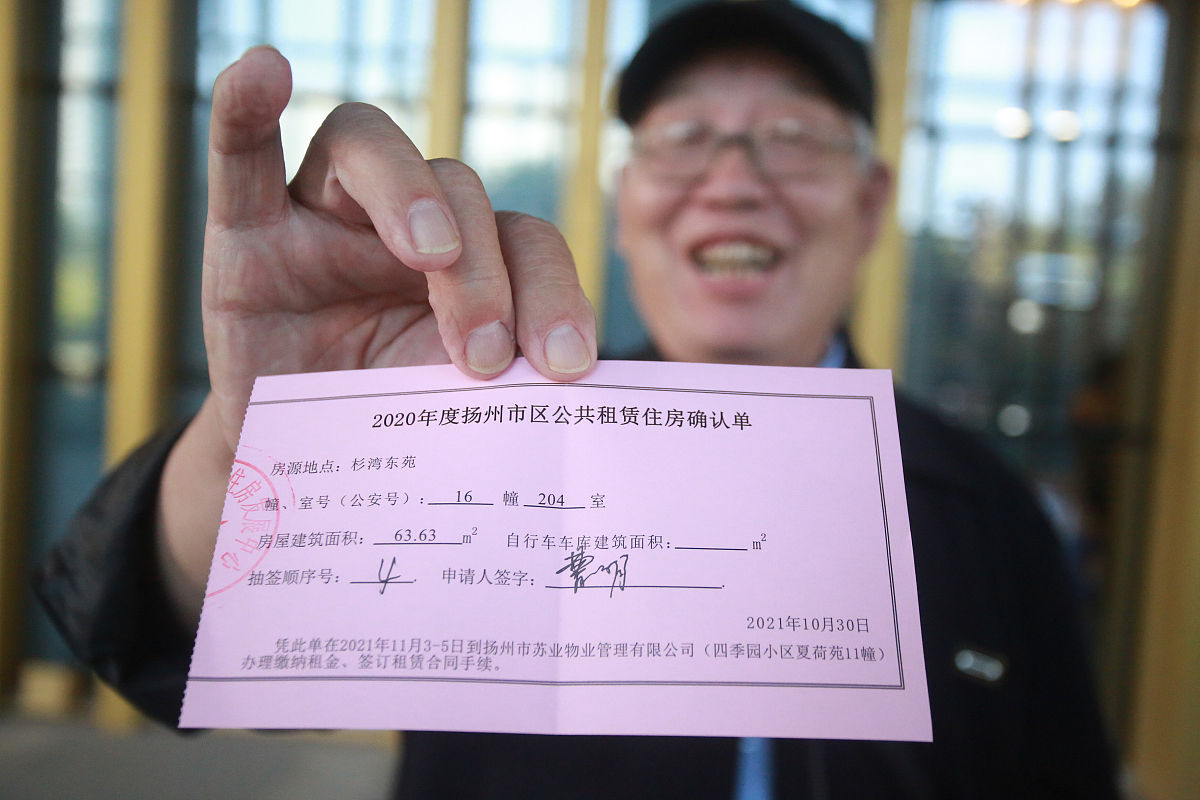 2020年度扬州市区公共租赁住房确认单
房源地点：杉湾东苑
幢、室号（公安号）：16 幢 204 室
房屋建筑面积：63.63 m² 自行车车库建筑面积： m²
抽签顺序号：4. 申请人签字：曹明.
2021年10月30日
凭此单在2021年11月3-5日到扬州市苏业物业管理有限公司（四季园小区夏荷苑11幢）
办理缴纳租金、签订租赁合同手续。
住房发展中心